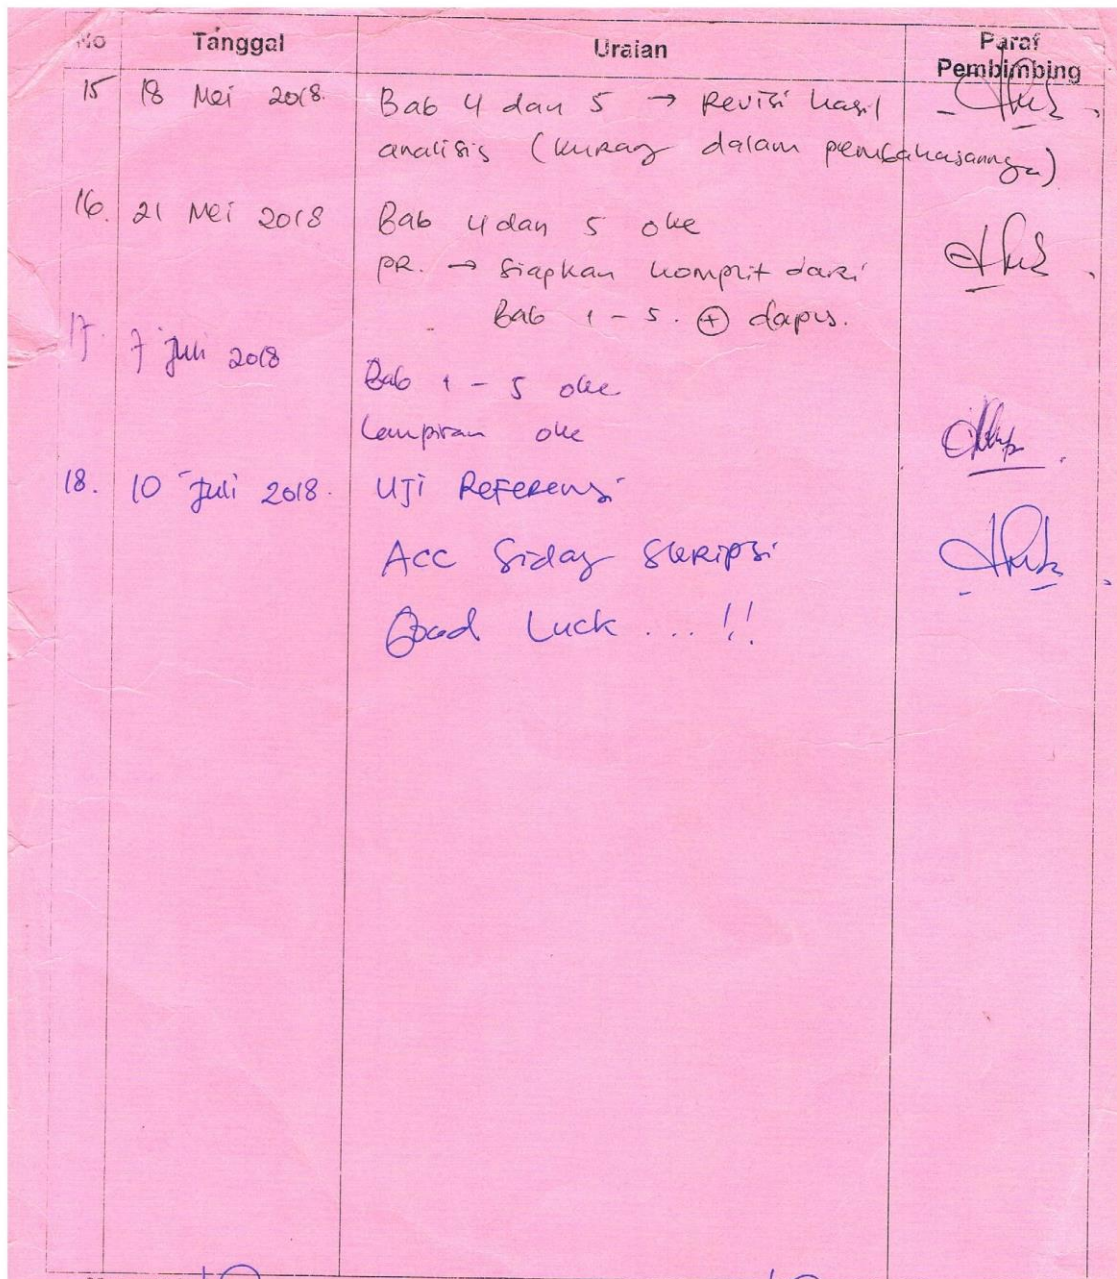 No Tanggal Uraian Paraf
Pembimbing
15 18 Mei 2018. Bab 4 dan 5 → Revisi hasil
analisis (kurang dalam pembahasannya)
16. 21 Mei 2018 Bab 4 dan 5 oke
PR. → Siapkan komplit dari
Bab 1 - 5. ⊕ dapus.
17. 7 Juli 2018
Bab 1 - 5 oke
Lampiran oke
18. 10 Juli 2018. Uji Referensi
Acc Sidang Skripsi
Good Luck ... !!